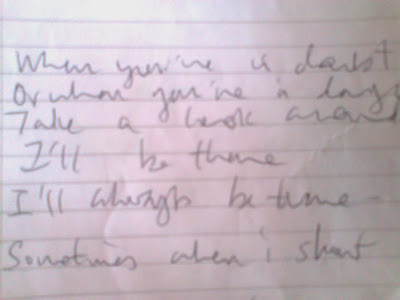 When you're is doubt
Or when you're in dang
Take a look aroun
I'll be there
I'll always be there
Sometimes when i shout